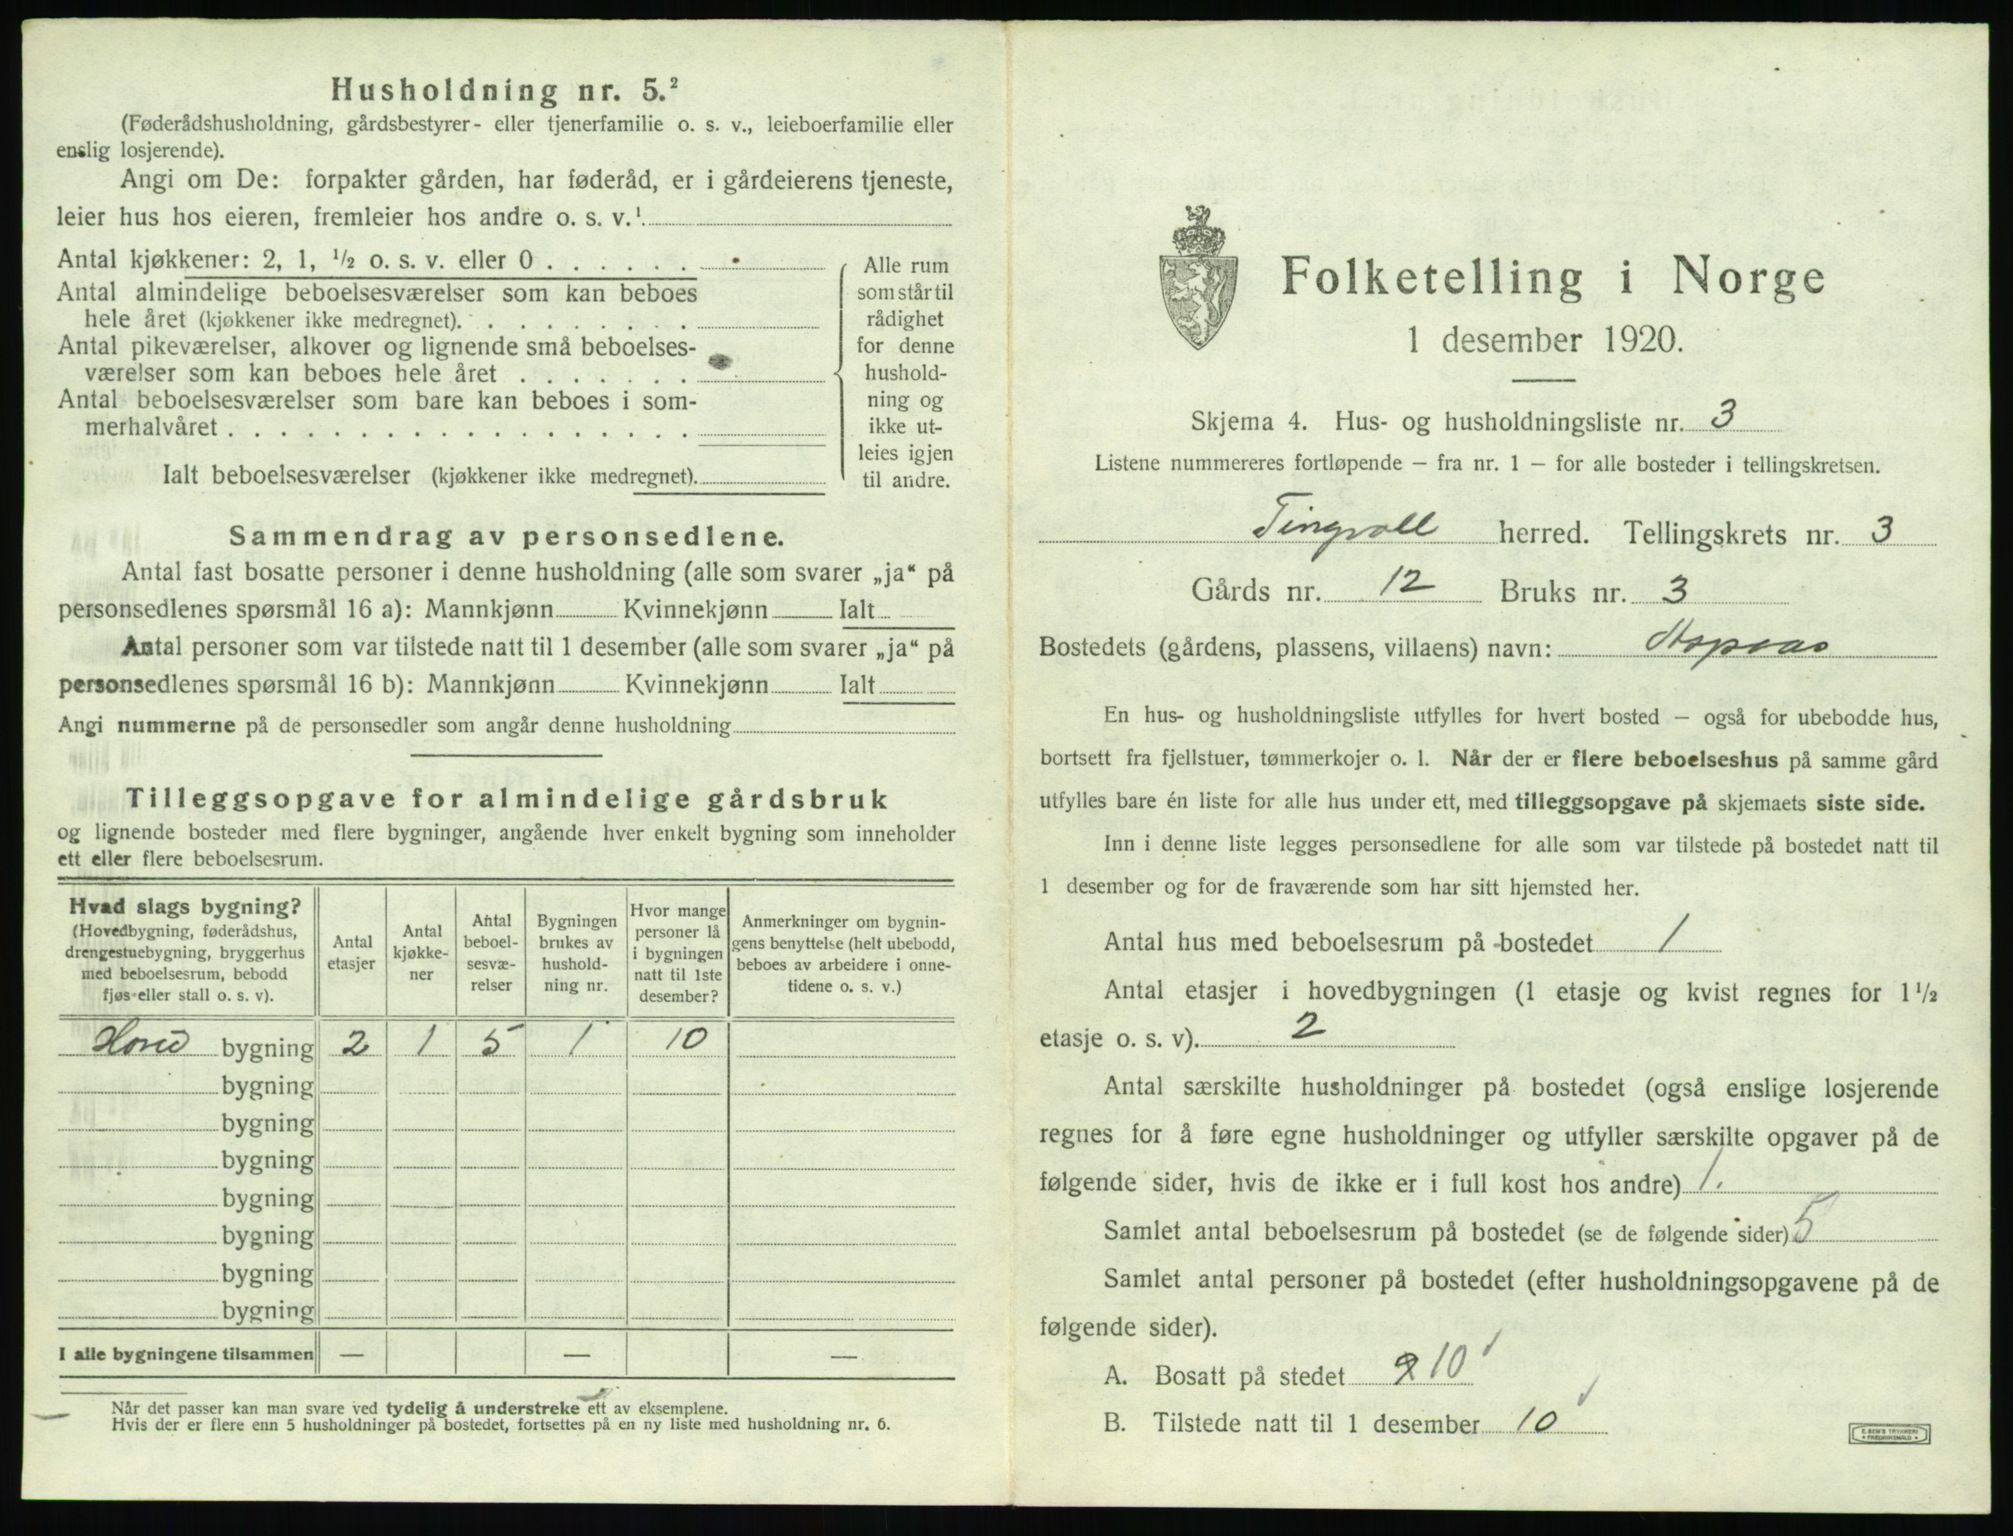 Husholdning nr. 5.²
(Føderådshusholdning, gårdsbestyrer- eller tjenerfamilie o. s. v., leieboerfamilie eller
enslig losjerende).
Angi om De: forpakter gården, har føderåd, er i gårdeierens tjeneste,
leier hus hos eieren, fremleier hos andre o. s. v.¹
Antal kjøkkener: 2, 1, ½ o. s. v. eller 0
Antal almindelige beboelsesværelser som kan beboes
hele året (kjøkkener ikke medregnet).
Antal pikeværelser, alkover og lignende små beboelses-
værelser som kan beboes hele året
Antal beboelsesværelser som bare kan beboes i som-
merhalvåret
Ialt beboelsesværelser (kjøkkener ikke medregnet).
Alle rum
som står til
rådighet
for denne
hushold-
ning og
ikke ut-
leies igjen
til andre.
Sammendrag av personsedlene.
Antal fast bosatte personer i denne husholdning (alle som svarer „ja“ på
personsedlenes spørsmål 16 a): Mannkjønn Kvinnekjønn Ialt
Antal personer som var tilstede natt til 1 desember (alle som svarer „ja“ på
personsedlenes spørsmål 16 b): Mannkjønn Kvinnekjønn Ialt
Angi nummerne på de personsedler som angår denne husholdning
Tilleggsopgave for almindelige gårdsbruk
og lignende bosteder med flere bygninger, angående hver enkelt bygning som inneholder
ett eller flere beboelsesrum.
Hvad slags bygning?
(Hovedbygning, føderådshus,
drengestuebygning, bryggerhus
med beboelsesrum, bebodd
fjøs eller stall o. s. v).
Antal
etasjer
Antal
kjøkke-
ner
Antal
beboel-
sesvæ-
relser
Bygningen
brukes av
hushold-
ning nr.
Hvor mange
personer lå
i bygningen
natt til 1ste
desember?
Anmerkninger om bygnin-
gens benyttelse (helt ubebodd,
beboes av arbeidere i onne-
tidene o. s. v.)
Hoved bygning 2 1 5 1 10
bygning
bygning
bygning
bygning
bygning
bygning
bygning
I alle bygningene tilsammen — — —
Når det passer kan man svare ved tydelig å understreke ett av eksemplene.
Hvis der er flere enn 5 husholdninger på bostedet, fortsettes på en ny liste med husholdning nr. 6.
Folketelling i Norge
1 desember 1920.
Skjema 4. Hus- og husholdningsliste nr. 3
Listene nummereres fortløpende — fra nr. 1 — for alle bosteder i tellingskretsen.
Tingvoll herred. Tellingskrets nr. 3
Gårds nr. 12 Bruks nr. 3
Bostedets (gårdens, plassens, villaens) navn:
En hus- og husholdningsliste utfylles for hvert bosted — også for ubebodde hus,
bortsett fra fjellstuer, tømmerkojer o. l. Når der er flere beboelseshus på samme gård
utfylles bare én liste for alle hus under ett, med tilleggsopgave på skjemaets siste side.
Inn i denne liste legges personsedlene for alle som var tilstede på bostedet natt til
1 desember og for de fraværende som har sitt hjemsted her.
Antal hus med beboelsesrum på bostedet 1
Antal etasjer i hovedbygningen (1 etasje og kvist regnes for 1½
etasje o. s. v). 2
Antal særskilte husholdninger på bostedet (også enslige losjerende
regnes for å føre egne husholdninger og utfyller særskilte opgaver på de
følgende sider, hvis de ikke er i full kost hos andre) 1.
Samlet antal beboelsesrum på bostedet (se de følgende sider) 5
Samlet antal personer på bostedet (efter husholdningsopgavene på de
følgende sider).
A. Bosatt på stedet 10
B. Tilstede natt til 1 desember 10